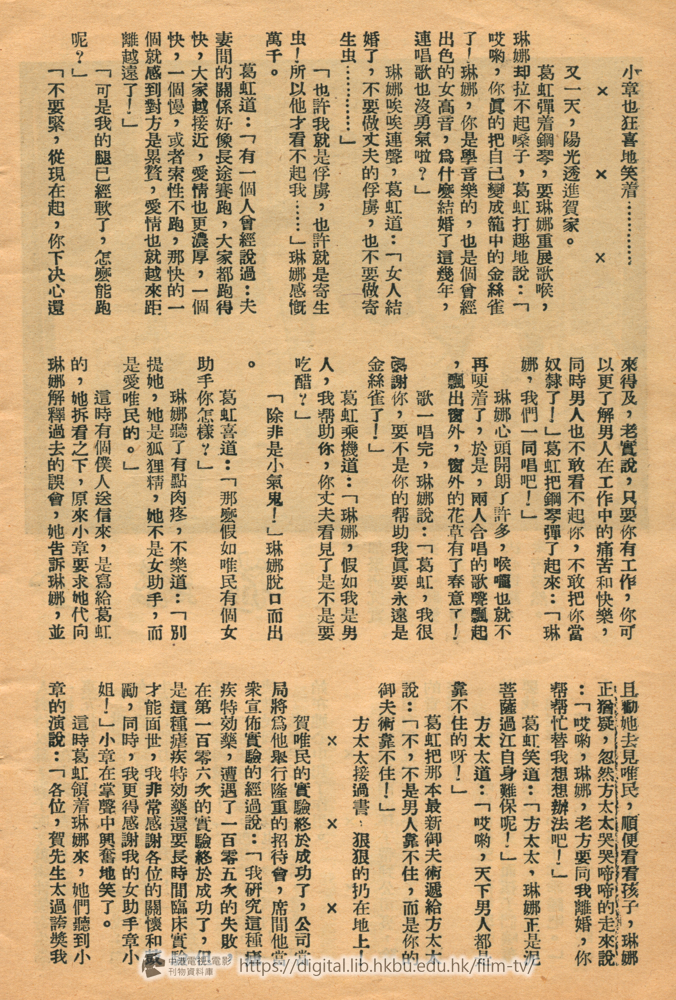 小章也狂喜地笑着…………
× × ×
又一天，陽光透進賀家。
葛虹彈着鋼琴，要琳娜重展歌喉，
琳娜却拉不起嗓子，葛虹打趣地說：「
哎喲，你眞的把自己變成籠中的金絲雀
了！琳娜，你是學音樂的，也是個曾經
出色的女高音，爲什麼結婚了這幾年，
連唱歌也沒勇氣啦？」
琳娜唉唉連聲，葛虹道：「女人結
婚了，不要做丈夫的俘虜，也不要做寄
生虫…………」
「也許我就是俘虜，也許就是寄生
虫！所以他才看不起我……」琳娜感慨
萬千。
葛虹道：「有一個人曾經說過：夫
妻間的關係好像長途賽跑，大家都跑得
快，大家越接近，愛情也更濃厚，一個
快，一個慢，或者索性不跑，那快的一
個就感到對方是累贅，愛情也就越來距
離越遠了！」
「可是我的腿已經軟了，怎麼能跑
呢？」
「不要緊，從現在起，你下决心還
來得及，老實說，只要你有工作，你可
以更了解男人在工作中的痛苦和快樂，
同時男人也不敢看不起你，不敢把你當
奴隸了！」葛虹把鋼琴彈了起來：「琳
娜，我們一同唱吧！」
琳娜心頭開朗了許多，喉嚨也就不
再哽着了，於是，兩人合唱的歌聲飄起
，飄出窗外，窗外的花草有了春意了！
歌一唱完，琳娜說：「葛虹，我很
感謝你，要不是你的帮助我眞要永遠是
金絲雀了！」
葛虹乘機道：「琳娜，假如我是男
人，我帮助你，你丈夫看見了是不是要
吃醋？」
「除非是小氣鬼！」琳娜脫口而出
。
葛虹喜道：「那麼假如唯民有個女
助手你怎樣？」
琳娜聽了有點肉疼，不樂道：「別
提她，她是狐狸精，她不是女助手，而
是愛唯民的。」
這時有個僕人送信來，是寫給葛虹
的，她拆看之下，原來小章要求她代向
琳娜解釋過去的誤會，她告訴琳娜，並
且勸她去見唯民，順便看看孩子，琳娜
正猶疑，忽然方太太哭哭啼啼的走來說
：「哎喲，琳娜，老方要同我離婚，你
帮帮忙替我想想辦法吧！」
葛虹笑道：「方太太，琳娜正是泥
菩薩過江自身難保呢！」
方太太道：「哎喲，天下男人都是
靠不住的呀！」
葛虹把那本最新御夫術遞給方太太
說：「不，不是男人靠不住，而是你的
御夫術靠不住！」
方太太接過書，狠狠的扔在地上！
× × ×
賀唯民的實驗終於成功了，公司當
局將爲他舉行隆重的招待會，席間他當
衆宣佈實驗的經過說：「我研究這種瘧
疾特効藥，遭遇了一百零五次的失敗，
在第一百零六次的實驗終於成功了，但
是這種瘧疾特効藥還要長時間臨床實驗
才能面世，我非常感謝各位的關懷和鼓
勵，同時，我更得感謝我的女助手章小
姐！」小章在掌聲中興奮地笑了。
這時葛虹領着琳娜來，她們聽到小
章的演說：「各位，賀先生太過誇獎我
中港電視·電影
刊物資料庫
https://digital.lib.hkbu.edu.hk/film-tv/